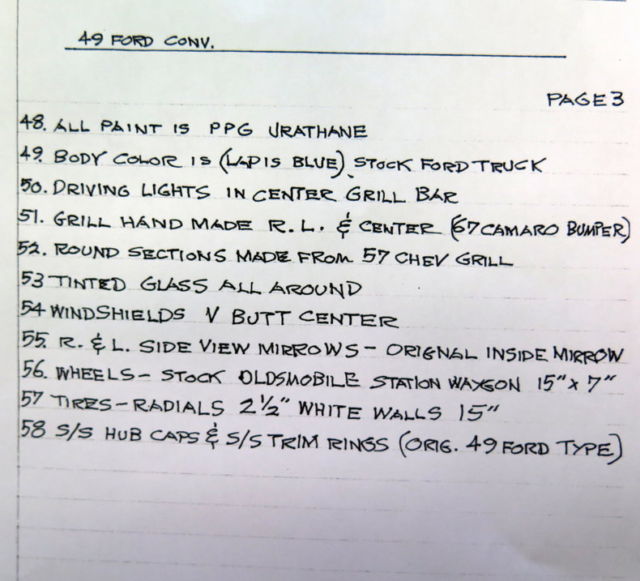 49 FORD CONV.
PAGE 3
48. ALL PAINT IS PPG URATHANE
49. BODY COLOR IS (LAPIS BLUE). STOCK FORD TRUCK
50. DRIVING LIGHTS IN CENTER GRILL BAR
51. GRILL HAND MADE R. L. & CENTER (67 CAMARO BUMPER)
52. ROUND SECTIONS MADE FROM 57 CHEV GRILL
53 TINTED GLASS ALL AROUND
54 WINDSHIELDS V BUTT CENTER
55. R. & L. SIDE VIEW MIRROWS - ORIGNAL INSIDE MIRROW
56. WHEELS - STOCK OLDSMOBILE STATION WAYGON 15" X 7"
57 TIRES - RADIALS 2 1/2" WHITE WALLS 15"
58 S/S HUB CAPS & S/S TRIM RINGS (ORIG. 49 FORD TYPE)